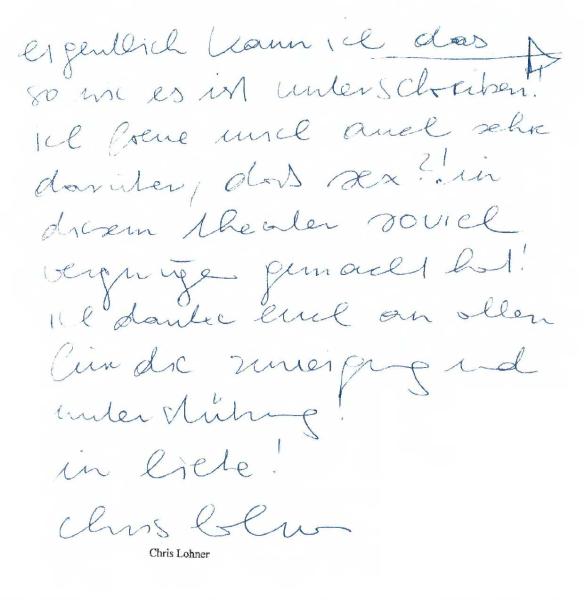 eigentlich kann ich das
so wie es ist unterschreiben!
ich freue mich auch sehr
darüber, daß sex?! in
diesem theater soviel
vergnügen gemacht hat!
ich danke euch an allen
für die zuneigung und
unterstützung!
in liebe!
chris lohner
Chris Lohner